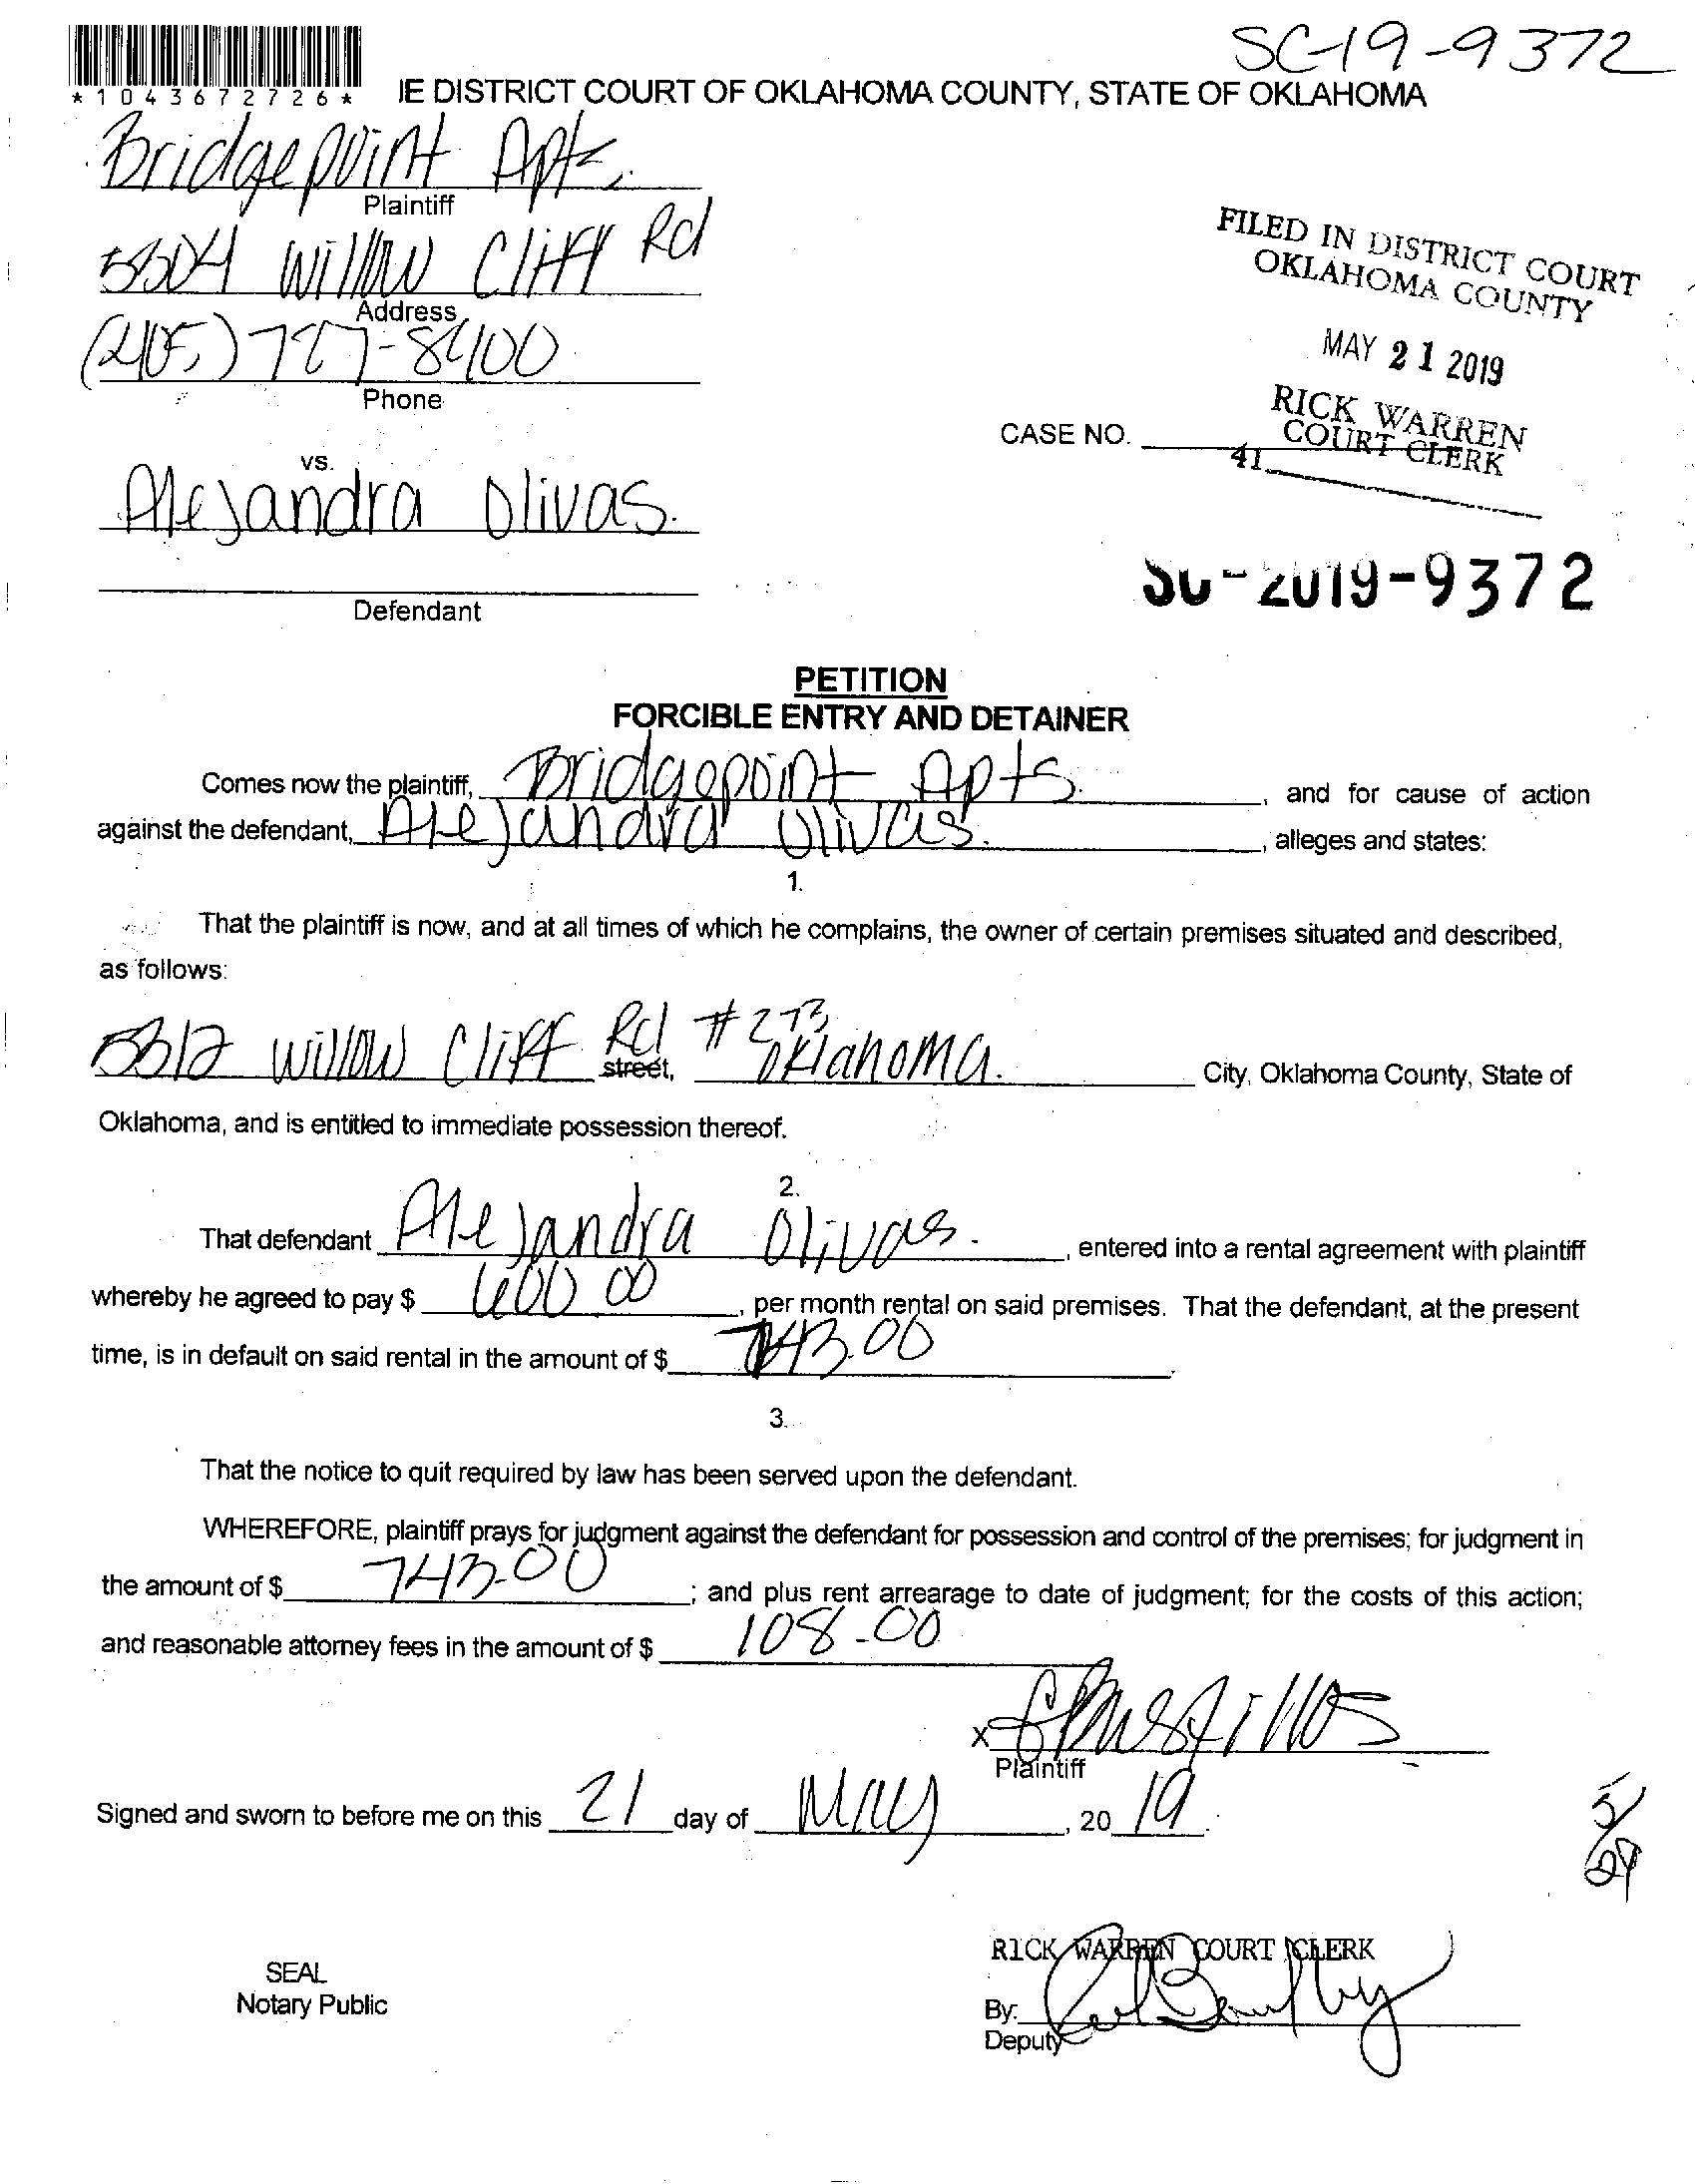 SC-19-9372
*1043672726*
IE DISTRICT COURT OF OKLAHOMA COUNTY, STATE OF OKLAHOMA
Bridgepoint Apts.
Plaintiff
5304 Willow Cliff Rd
Address
(405) 787-8400
Phone
FILED IN DISTRICT COURT
OKLAHOMA COUNTY
MAY 21 2019
RICK WARREN
COURT CLERK
41
CASE NO.
vs.
Alejandra Olivas.
Defendant
SC-2019-9372
PETITION
FORCIBLE ENTRY AND DETAINER
Comes now the plaintiff, Bridgepoint Apts. , and for cause of action
against the defendant, Alejandra Olivas. , alleges and states:
1.
That the plaintiff is now, and at all times of which he complains, the owner of certain premises situated and described,
as follows:
5312 Willow Cliff Rd #273 street, Oklahoma. City, Oklahoma County, State of
Oklahoma, and is entitled to immediate possession thereof.
2.
That defendant Alejandra Olivas. , entered into a rental agreement with plaintiff
whereby he agreed to pay $ 600 00 , per month rental on said premises. That the defendant, at the present
time, is in default on said rental in the amount of $ 743.00 .
3.
That the notice to quit required by law has been served upon the defendant.
WHEREFORE, plaintiff prays for judgment against the defendant for possession and control of the premises; for judgment in
the amount of $ 743.00 ; and plus rent arrearage to date of judgment; for the costs of this action;
and reasonable attorney fees in the amount of $ 108.00
X
Plaintiff
Signed and sworn to before me on this 21 day of May , 20 19 .
5/29
SEAL
Notary Public
RICK WARREN COURT CLERK
By:
Deputy